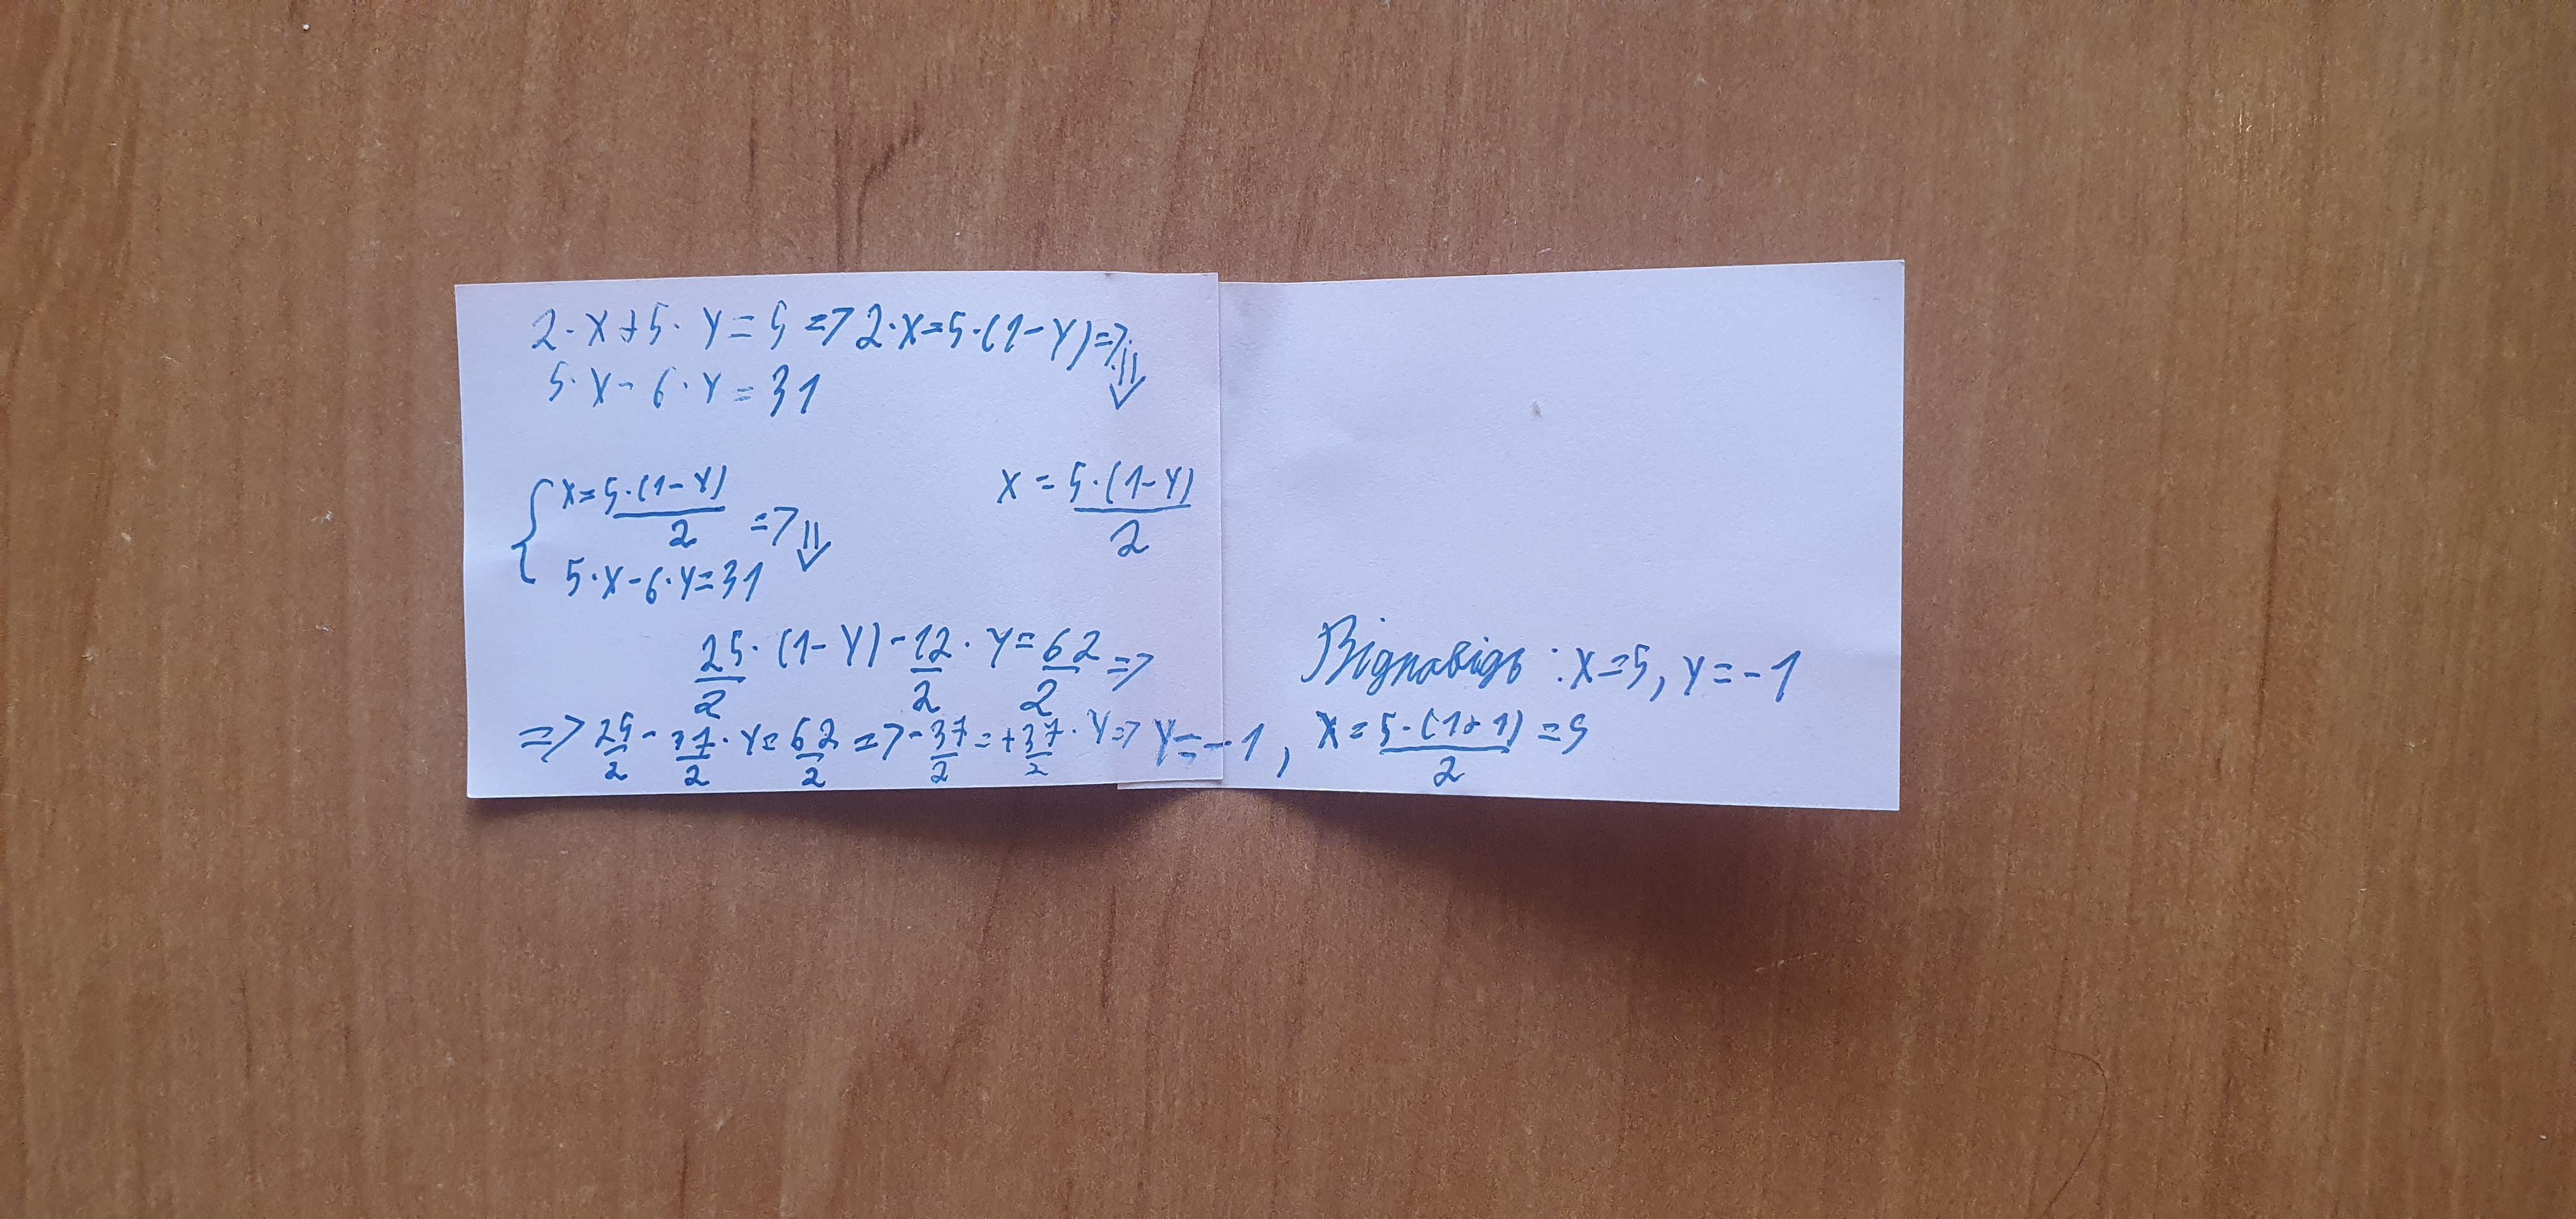 2·x+5·y=5=>2·x=5·(1-y)=>
⇓
5·x-6·y=31
{x=5·(1-y)/2 =>⇓
x=5·(1-y)/2
5·x-6·y=31
25/2·(1-y)-12/2·y=62/2=>
=>25/2-37/2·y=62/2=>-37/2=+37/2·y=>y=-1, x=5·(1+1)/2=5
Відповідь: x=5, y=-1